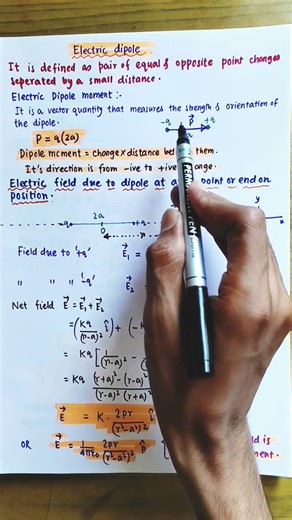 Electric dipole
It is defined as pair of equal & opposite point charges
seperated by a small distance.
Electric Dipole moment :-
It is a vector quantity that measures the strength & orientation of
the dipole.
-q P⃗ +q
P = q(2a)
Dipole moment = charge × distance between them.
It's direction is from -ive to +ive charge.
Electric field due to dipole at a point or end on
position.
-q 2a +q y
O
Field due to '+q' E⃗₁ =
" " '-q' E⃗₂
Net field E⃗ = E⃗₁ + E⃗₂
= (Kq/(r-a)² î) + (-K
= Kq [1/(r-a)² -
= Kq (r+a)² - (r-a)² / (r-a)² (r+a)²
E⃗ = K · 2pr/(r²-a²)² î
OR E⃗ = 1/4πε₀ 2pr/(r²-a²)² p̂ [ ld is
ment.